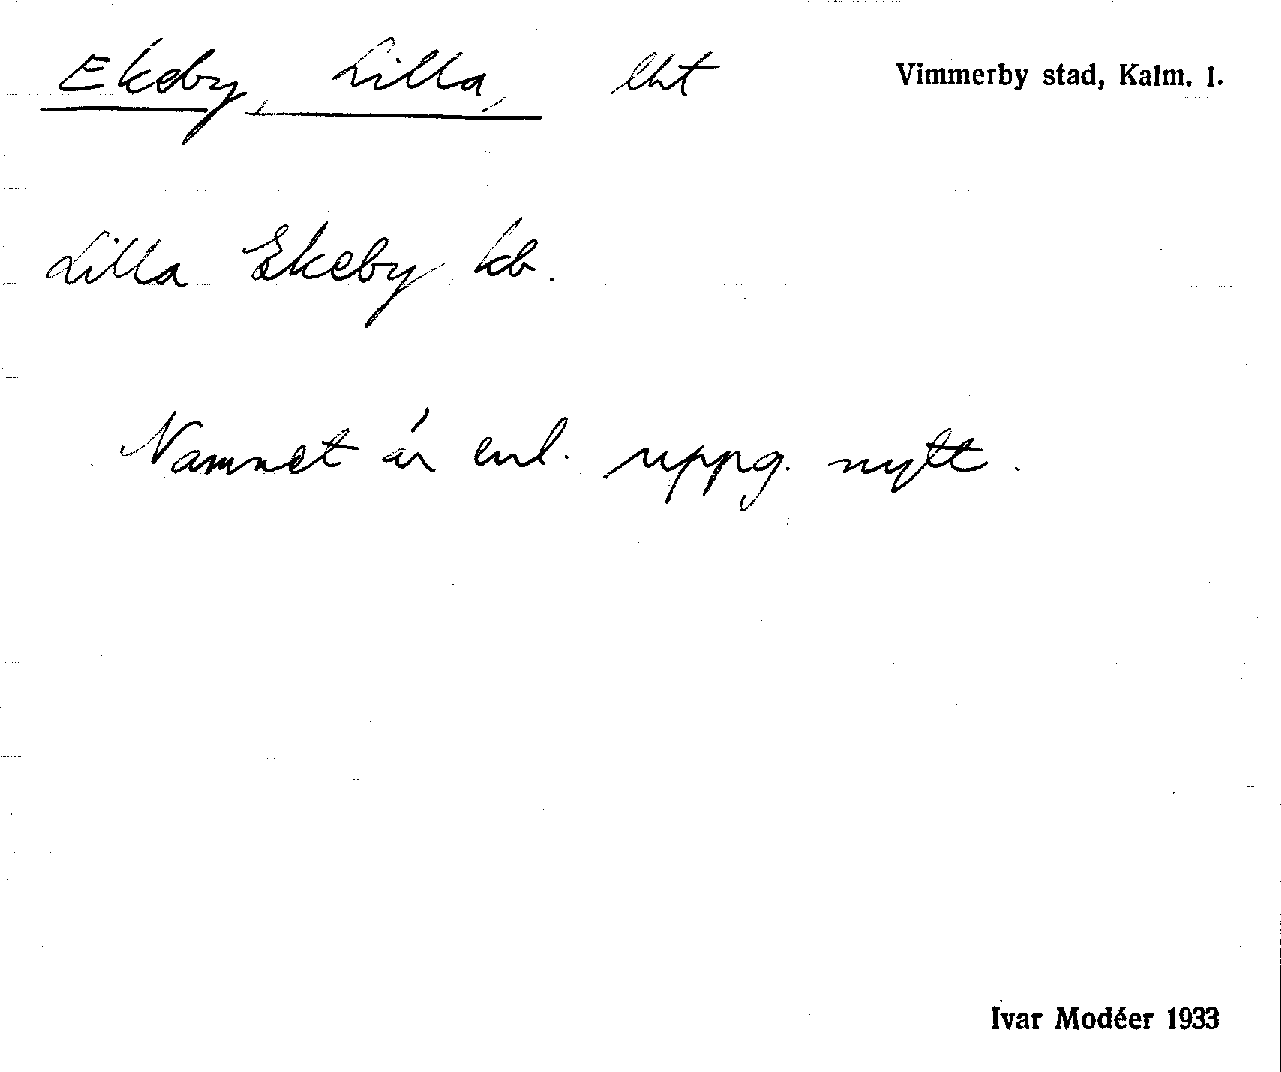 Ekeby, Lilla, lht Vimmerby stad, Kalm. l.
Lilla Ekeby kb.
Namnet är enl. uppg. nytt.
Ivar Modéer 1933